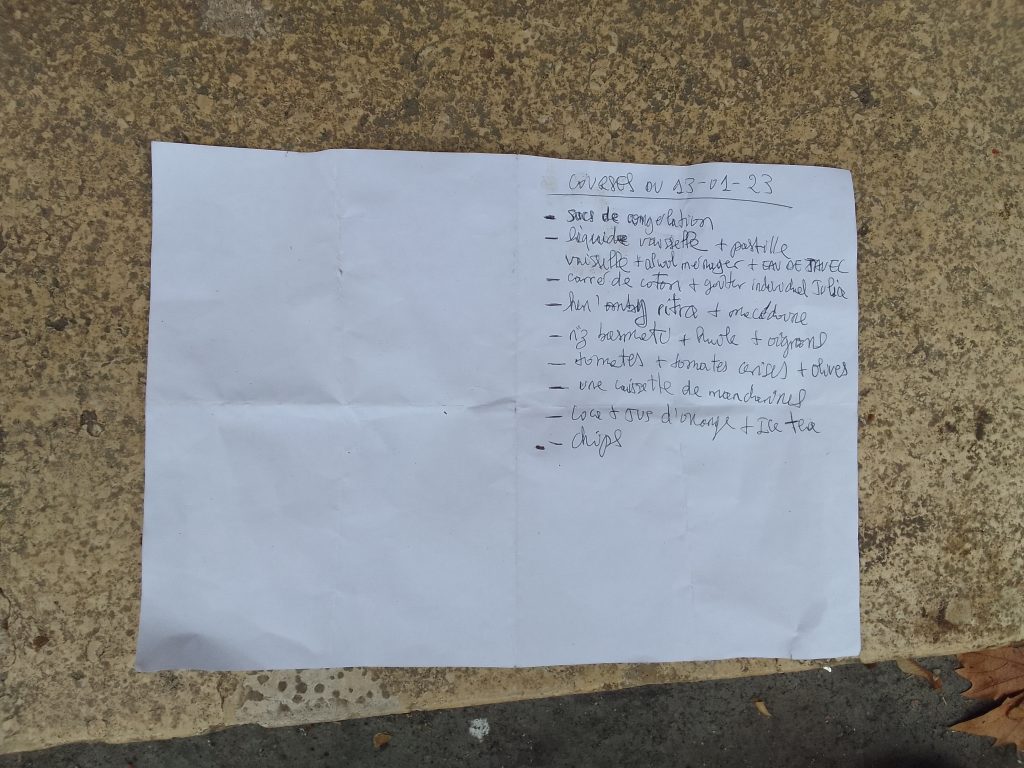 COURSES DU 13-01-23
- sacs de congelation
- liquide vaisselle + pastille
vaisselle + alcool ménager + EAU DE JAVEC
- carré de coton + goûter individuel
- + macédoine
- riz basmati + huile + oignons
- tomates + tomates cerises + olives
- une caissette de mandarines
- Coca + Jus d'orange + Ice tea
- chips